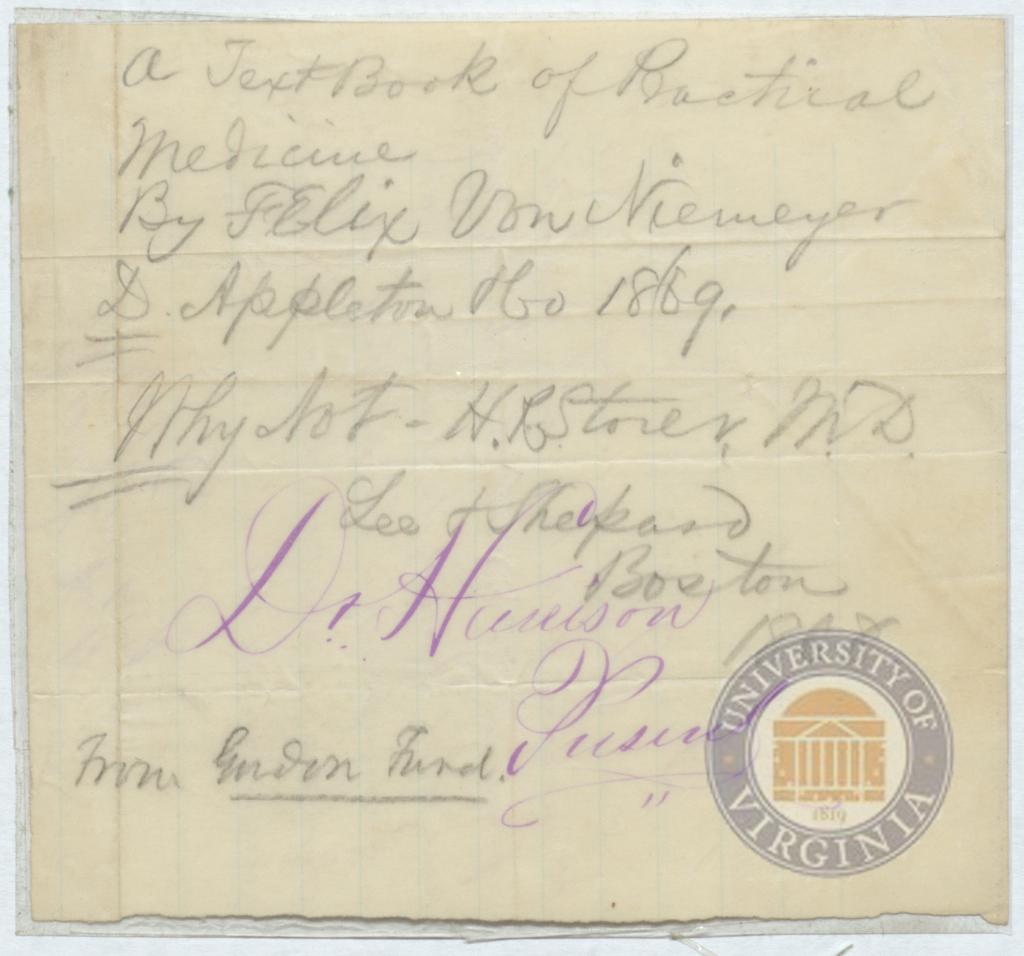 A Text Book of Practical
Medicine
By FElix Von Niemeyer
D. Appleton & Co 1869.
Why Not - H. R. Storer, M.D.
Lee & Shepard
Boston
Dr. Harrison
From Gordon Fund.
UNIVERSITY OF
VIRGINIA
1819